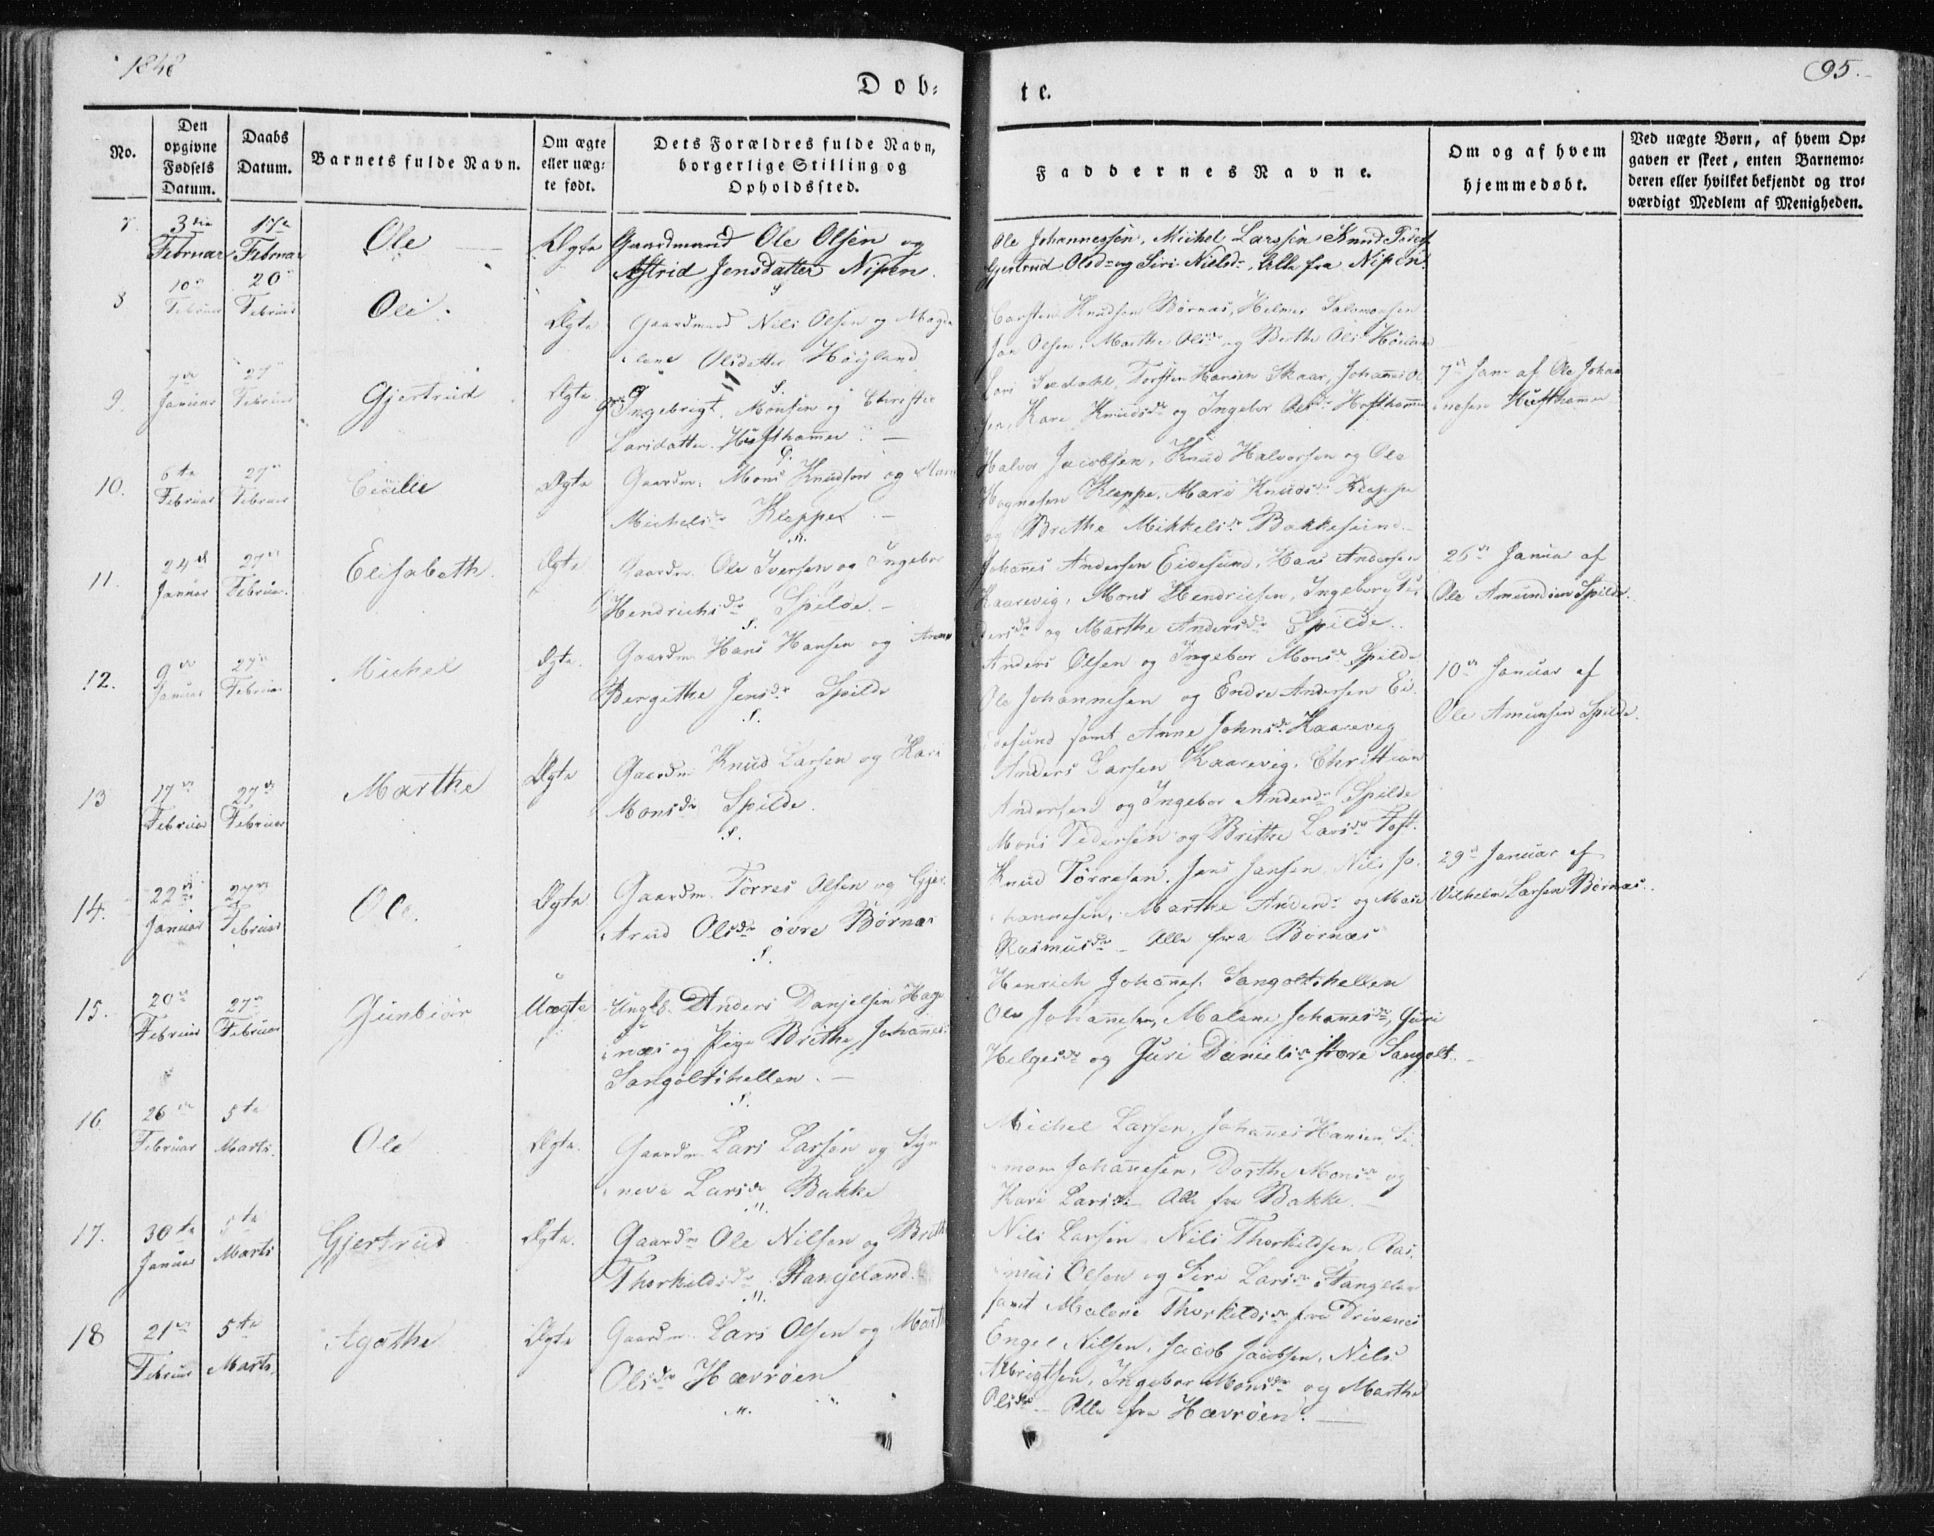 1848
Døb-
te.
95.
No.
Den opgivne Fødsels Datum.
Daabs Datum.
Barnets fulde Navn.
Om ægte eller uægte født.
Dets Forældres fulde Navn, borgerlige Stilling og Opholdssted.
Faddernes Navne.
Om og af hvem hjemmedøbt.
Ved uægte Børn, af hvem Opgaven er skeet, enten Barnemoderen eller hvilket bekjendt og troværdigt Medlem af Menigheden.
7. 3die Februar 17de Februar Ole Ægte Gaardmand Ole Olsen og
Astrid Jensdatter Nipen.
Ole Johannessen, Michel Larssen Knud Peders
Gjertrud Olsdr og Siri Nielsdr, Alle fra Nipen.
8 10de Februar 20 Februar Oli. Ægte Gaardmand Nils Olsen og Magda
lene Olsdatter Høyland
Carsten Knudsen Børnæs, Helmer Salomonsen
Jon Olsen, Marthe Olsdr og Berthe Olsdr
9. Januar 27 Februar Gjertrud Ægte Ingebrigt Monsen og Christie
Larsdatter Hufthamer
Torsten Hansen Skaar, Johannes Ol
sen, Kari Knudsdr og Ingebor Olsdr Hufthammer
7de Janr af Ole Johan
nesen Hufthamer
10. 6te Februar 27de Februar Cicilie Ægte Gaardm: Mons Knudsen og Mari
Michelsdr Kleppe.
Halvor Jacobsen, Knud Halvorsen og Ole
Hognesen Kleppe, Mari Knudsdr Kleppe
og Brithe Mikkelsdr Bakkesund.
11. 24de Januar 27de Februar Elisabeth. Ægte Gaardm Ole Iversen og Ingebor
Hendrichsdr Spilde.
Johanes Andersen Eidesund, Hans Andersen
Kaarevig, Mons Hendricsen, Ingeborg Pe
dersdr og Marthe Andersdr Spilde.
26de Januar af
Ole Amundsen Spilde.
12. 9de Januar 27de Februar Michel Ægte Gaardm Hans Hansen og Anne
Bergithe Jensdr Spilde
Anders Olsen og Ingebor Monsdr Spilde
Ole Johannesen og Endre Andersen Ei-
desund samt Anne Johnsdr Kaarevig
10de Januar af
Ole Amunsen Spilde.
13 17de Februar 27de Februar Marthe Ægte Gaardm Knud Larsen og Kari
Monsdr Spilde.
Anders Larsen Kaarevig, Christian
Andersen og Ingebor Andersdr Spilde
Mons Pedersen og Brithe Larsdr Toft.
14. 22de Januar 27de Februar Ole. Ægte Gaardm. Tørres Olsen og Gjer
trud Olsdr øvre Børnæs
Knud Tørresen, Jens Jansen, Nils Jo-
hannesen, Marthe Andersdr og Mari
Rasmusdr Alle fra Børnæs
29de Januar af
Vilhelm Larsen Børnæs.
15. 20de Februar 27de Februar Gunbiør Uægte Ungk. Anders Danjelsen Hage
næs og Pige Brithe Johannes
Sangoltshellen.
Henrich Johanes. Sangoltshellen
Ole Johannesen, Malene Johanesdr, Guri
Helgesdr og Guri Danielsdr store Sangolt.
16 26de Februar 5te Marts. Ole Ægte. Gaardm Lars Larsen og Syn
neve Larsdr Bakke
Michel Larsen, Johannes Hansen, Si
mon Johannesen, Dorthe Monsdr og
Kari Larsdr Alle fra Bakke.
17. 30te Januar 5te Marts Gjertrud Ægte. Gaardm Ole Nilsen og Brith
Thorkildsdr Stangeland.
Nils Larsen, Nils Thorkildsen, Ras
mus Olsen og Siri Larsdr Stangelan
samt Malene Thorkildsdr fra Drivenes
18 21de Februar 5te Marts. Agathe Ægte Gaardm. Lars Olsen og Marth
Olsdr Hævrøen
Engel Nilsen, Jacob Jacobsen, Nils
Albrigtsen, Ingebor Monsdr og Marthe
Olsdr Alle fra Hævrøen.